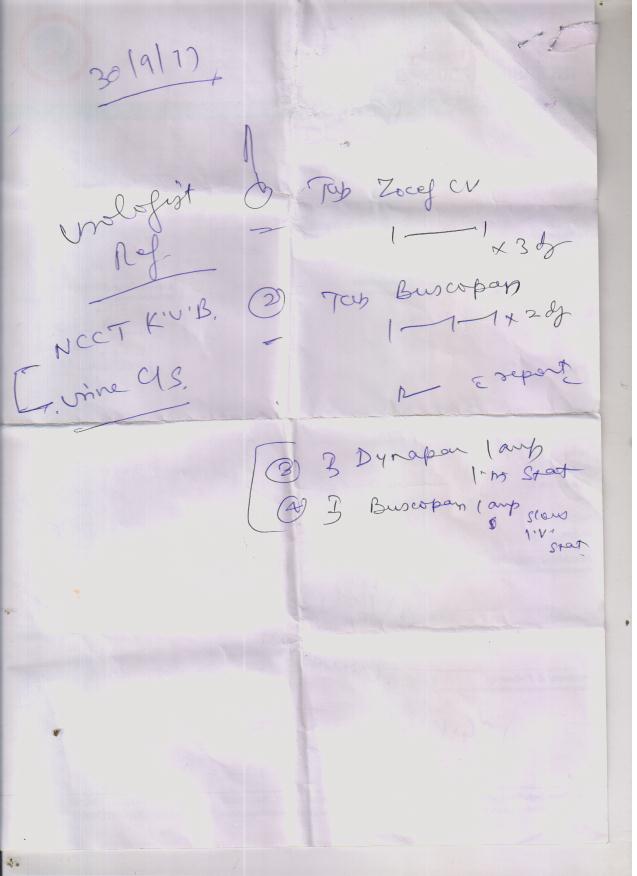 30/9/17
Urologist
Ref.
NCCT K.U.B.
Urine C/S.
① Tab Zocef CV
1 — 1 x 3 dy
② Tab Buscopan
1 — 1 — 1 x 2 dy
R c̄ report
③ I Dynapar 1 amp
I.M Stat
④ I Buscopan 1 amp slow
I.V.
stat